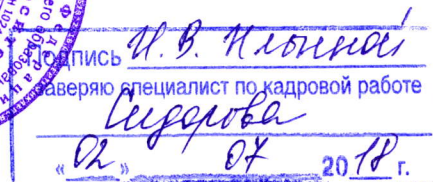 Подпись И. В. Ильиной
заверяю специалист по кадровой работе
Сидорова
«02» 07 2018 г.